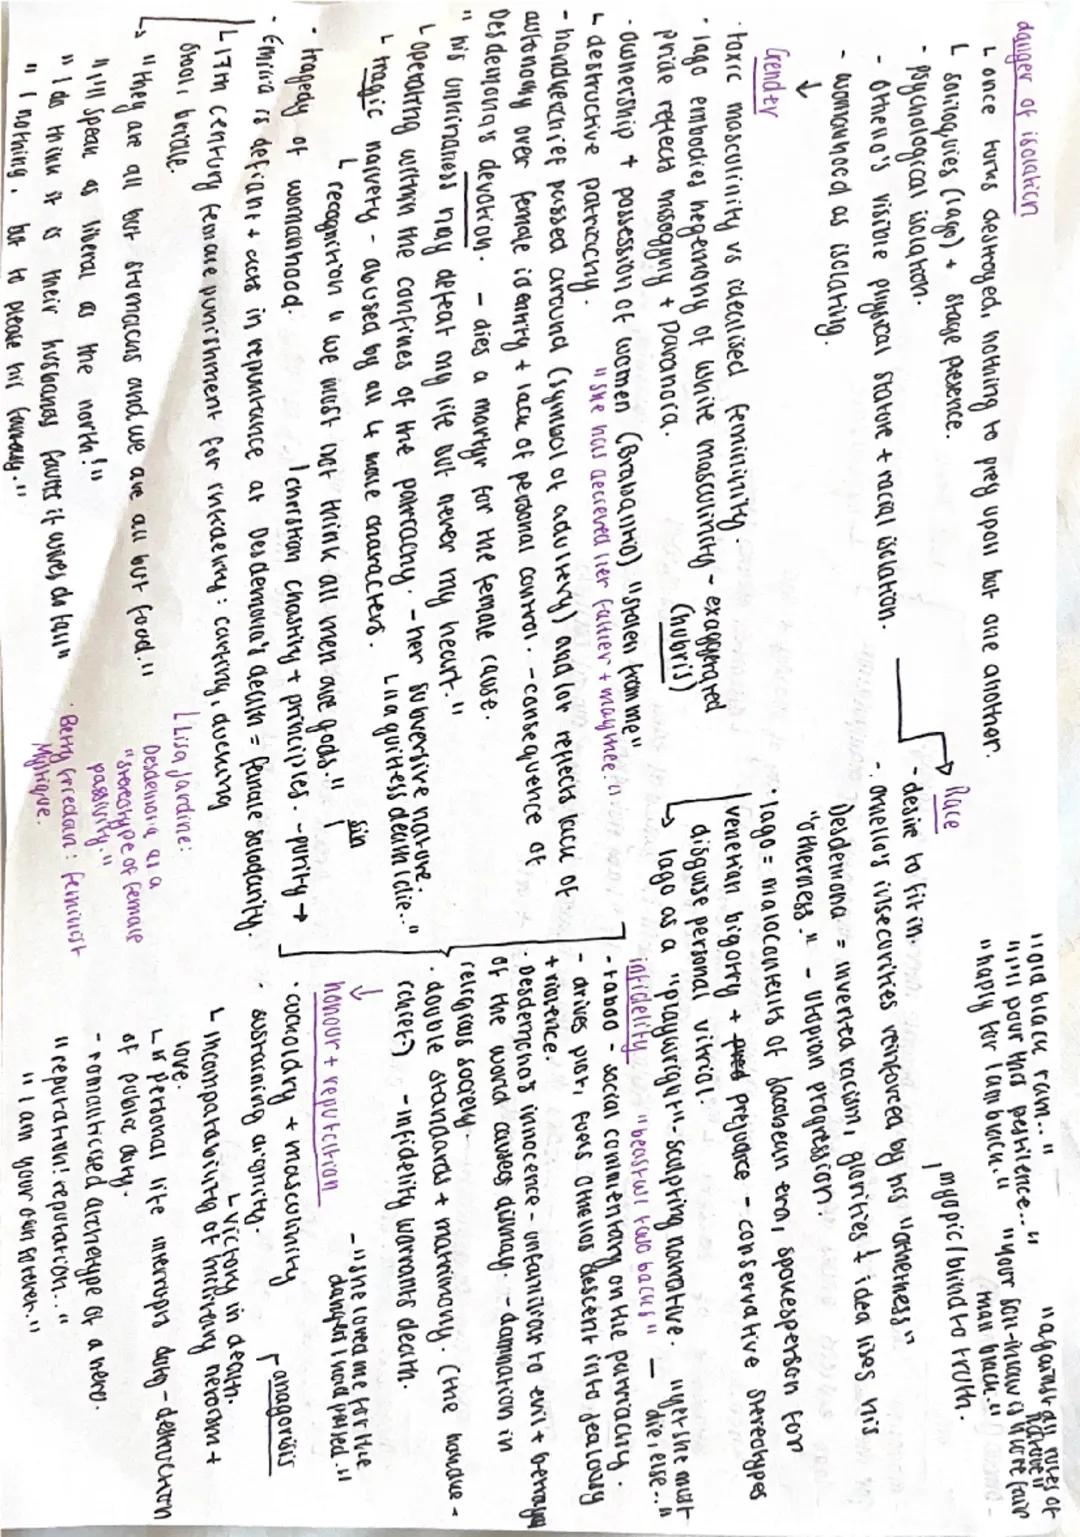 danger of isolation
↳ once turns destroyed, nothing to prey upon but one another.
↳ soliloquies (Iago) + stage presence.
- psychological isolation.
- Othello's visible physical stature + racial isolation.
- womanhood as isolating.
↓
Gender
· toxic masculinity vs idealised femininity.
· Iago embodies hegemony of white masculinity - exaggerated
pride reflects misogyny + paranoia. (hubris)
· ownership + possession of women (Brabantio) "stolen from me"
↳ destructive patriarchy. "she has deceived her father + may thee."
- handkerchief passed around (symbol of adultery) and/or reflects lack of
autonomy over female identity + lack of personal control. - consequence of
Desdemona's devotion. - dies a martyr for the female cause.
"his unkindness may defeat my life but never my heart."
↳ operating within the confines of the patriarchy. - her subversive nature.
↳ tragic naivety - abused by all 4 male characters. ↳ "a guiltless death I die.."
↳ recognition "we must not think all men are gods."
· tragedy of womanhood. ⌈ christian chastity + principles. - purity → sin
· Emilia is defiant + acts in repentance at Desdemona's death = female solidarity.
↳ 17th century female punishment for infidelity: carting, ducking
stool, bridle.
↳ "they are all but stomachs and we are all but food."
"I'll speak as liberal as the north!"
"I do think it is their husbands faults if wives do fall"
"I nothing, but to please his fantasy."
⌊ Lisa Jardine:
Desdemona as a
"stereotype of female
passivity."
· Betty Friedan: Feminist
Mystique.
"old black ram.."
"I'll pour this pestilence.."
"haply for I am black."
"against all rules of
nature"
"your son-in-law is more fair
than black."
Race
- desire to fit in. myopic/blind to truth.
- Othello's insecurities reinforced by his "otherness"
Desdemona = inverted racism, glorifies + idealises his
"otherness" - utopian progression.
· Iago = malocontents of Jacobean era, spokesperson for
venetian bigotry + prejudice - conservative stereotypes
disguise personal vitriol.
↳ Iago as a "playwright" - sculpting narrative. "yet she must
die, else.."
infidelity "beast w/ two backs"
- taboo - social commentary on the patriarchy.
- drives plot, fuels Othellos descent into jealousy
+ violence.
· Desdemona's innocence - unfamiliar to evil + betrayal
of the world causes dismay. - damnation in
religious society.
· double standards + matrimony. (the handke-
rchief) - infidelity warrants death.
↓
honour + reputation
- "she loved me for the
dangers I had passed."
· cuckoldry + masculinity
· sustaining dignity. anagorisis
↳ victory in death.
↳ incompatability of military heroism +
love.
↳ if personal life interrupts duty - destruction
of public duty.
- romanticised archetype of a hero.
"reputation! reputation.."
"I am your own forever."